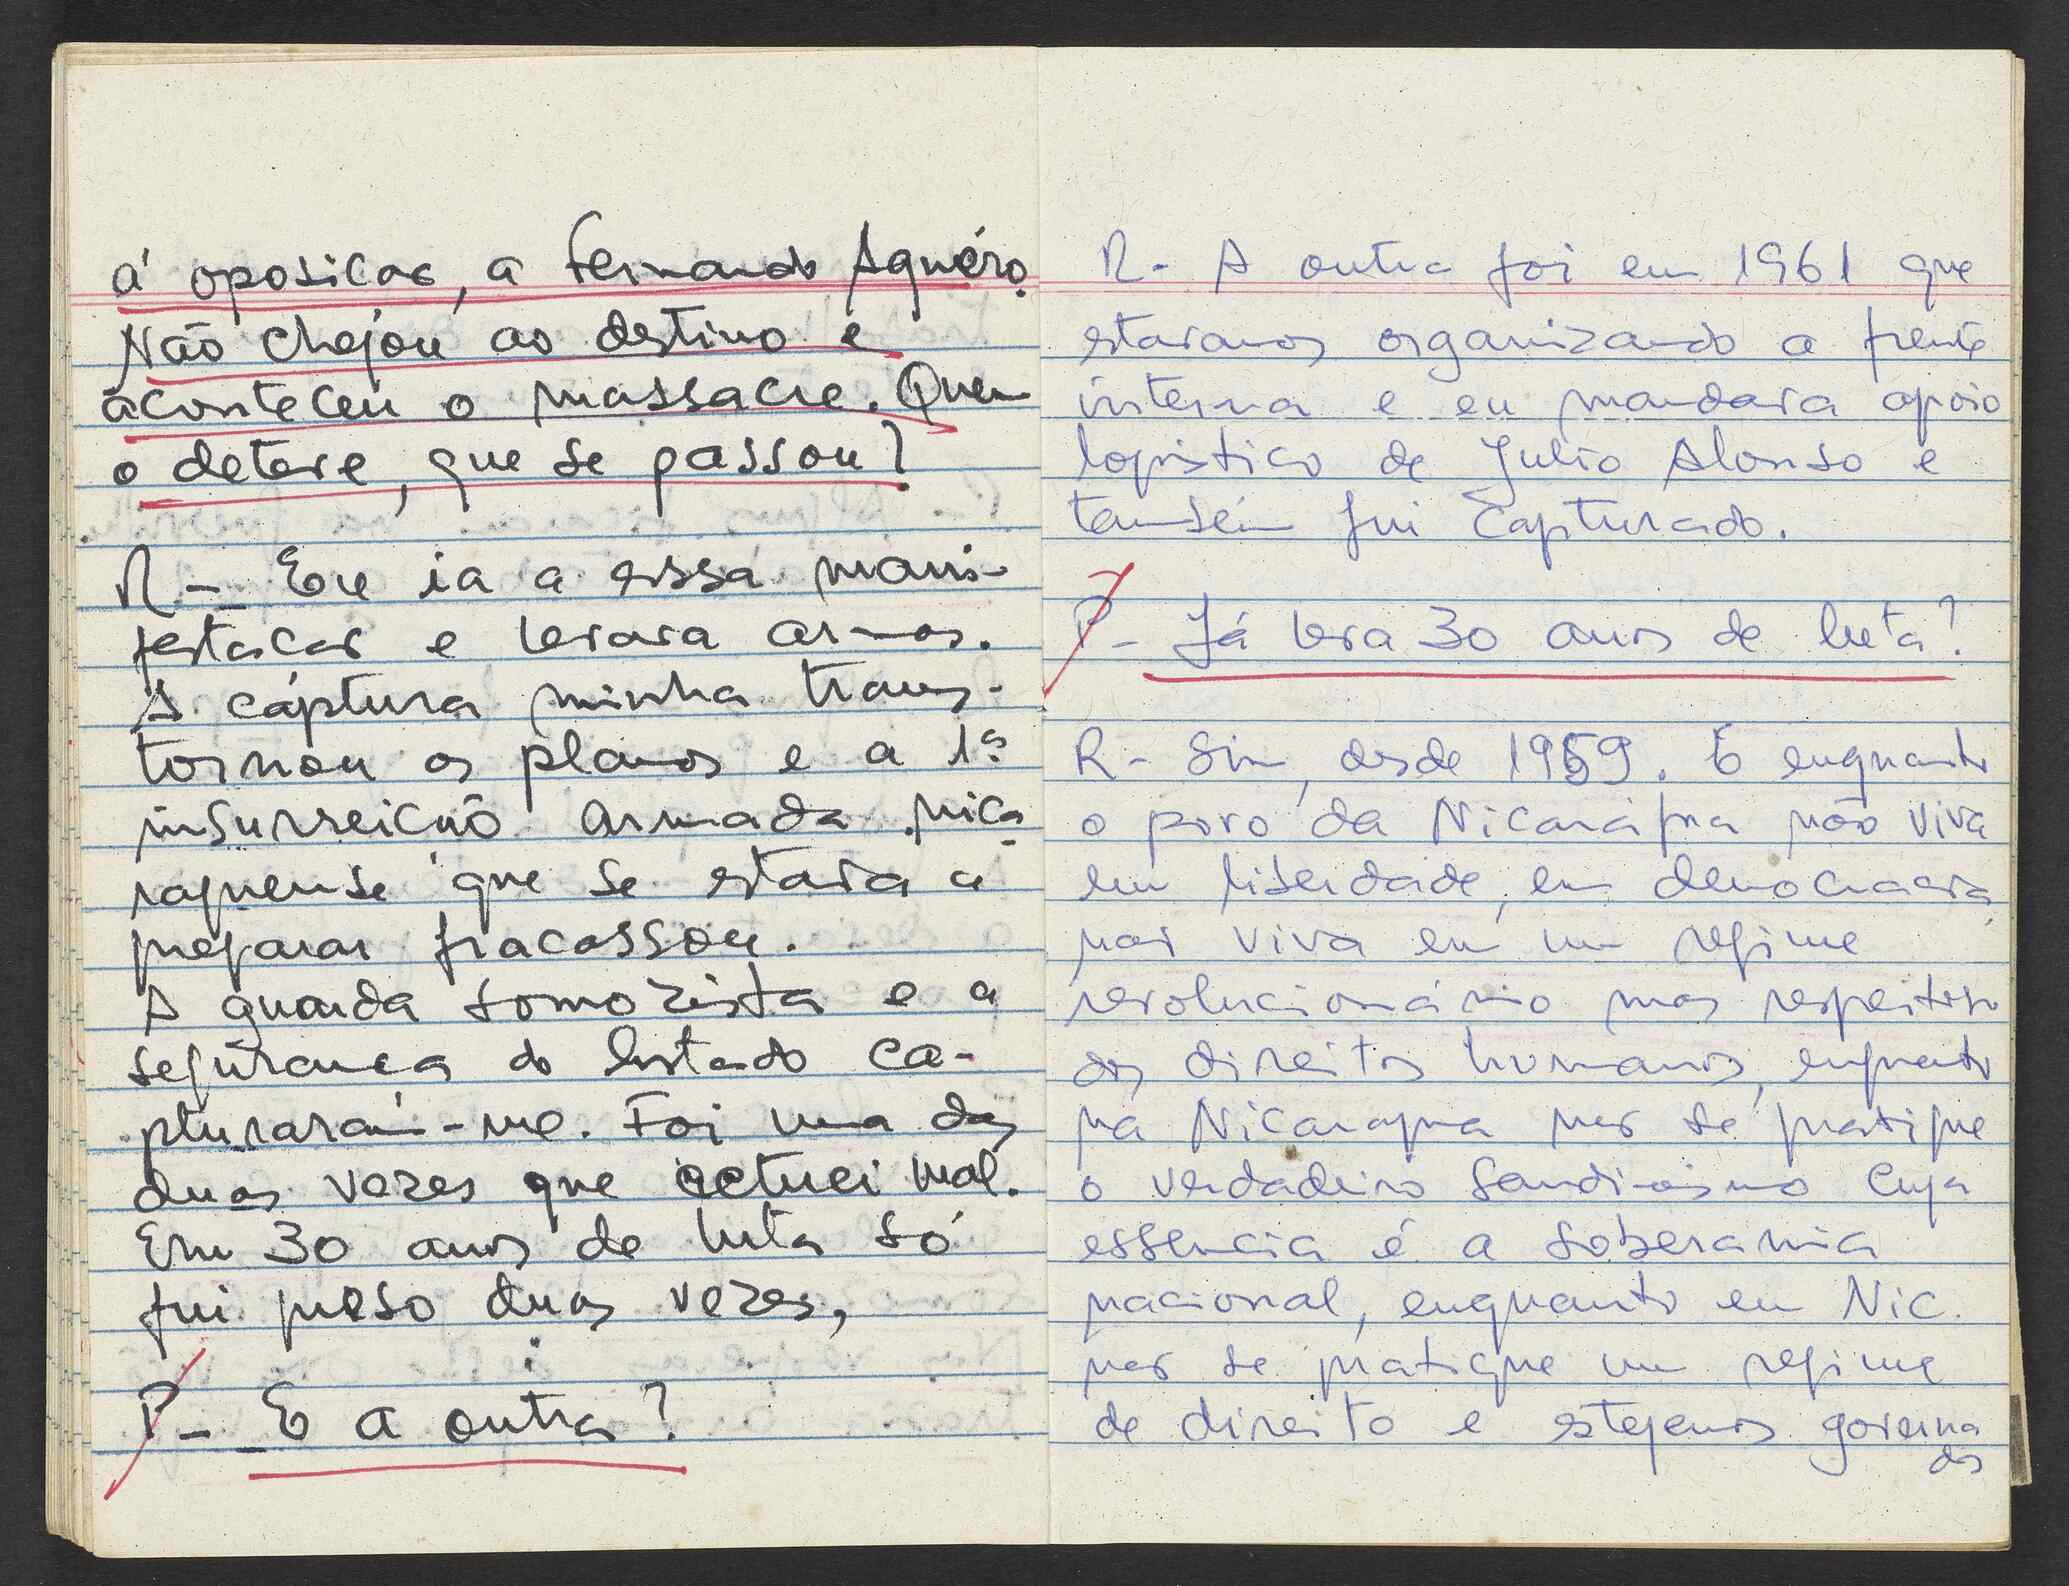 á oposicao, a Fernando Aguéro.
Não chejou ao destino e
aconteceu o massacre. Quem
o deteve, que se passou?
R - Eu ia a essa mani-
festacao e levava armas.
A captura minha trans-
tornou os planos e a 1ª
insurreicão armada nica
raguense que se estava a
preparar fracassou.
A guarda somozista e a
seguranca do Estado ca-
pturaram-me. Foi uma das
duas vezes que actuei mal.
Em 30 anos de luta só
fui preso duas vezes,
P - E a outra?
R - A outra foi em 1961 que
estavamos organizando a frente
interna e eu mandava apoio
logistico de Julio Alonso e
também fui capturado.
P - Já leva 30 anos de luta?
R - Sim, desde 1959. E enquanto
o povo da Nicarágua não viva
em liberdade, em democracia,
nao viva em um regime
revolucionário mas respeitoso
dos direitos humanos, enquanto
na Nicaragua nao se pratique
o verdadeiro Sandinismo cuja
essencia é a soberania
nacional, enquanto em Nic.
nao se pratique um regime
de direito e estejamos governa
dos